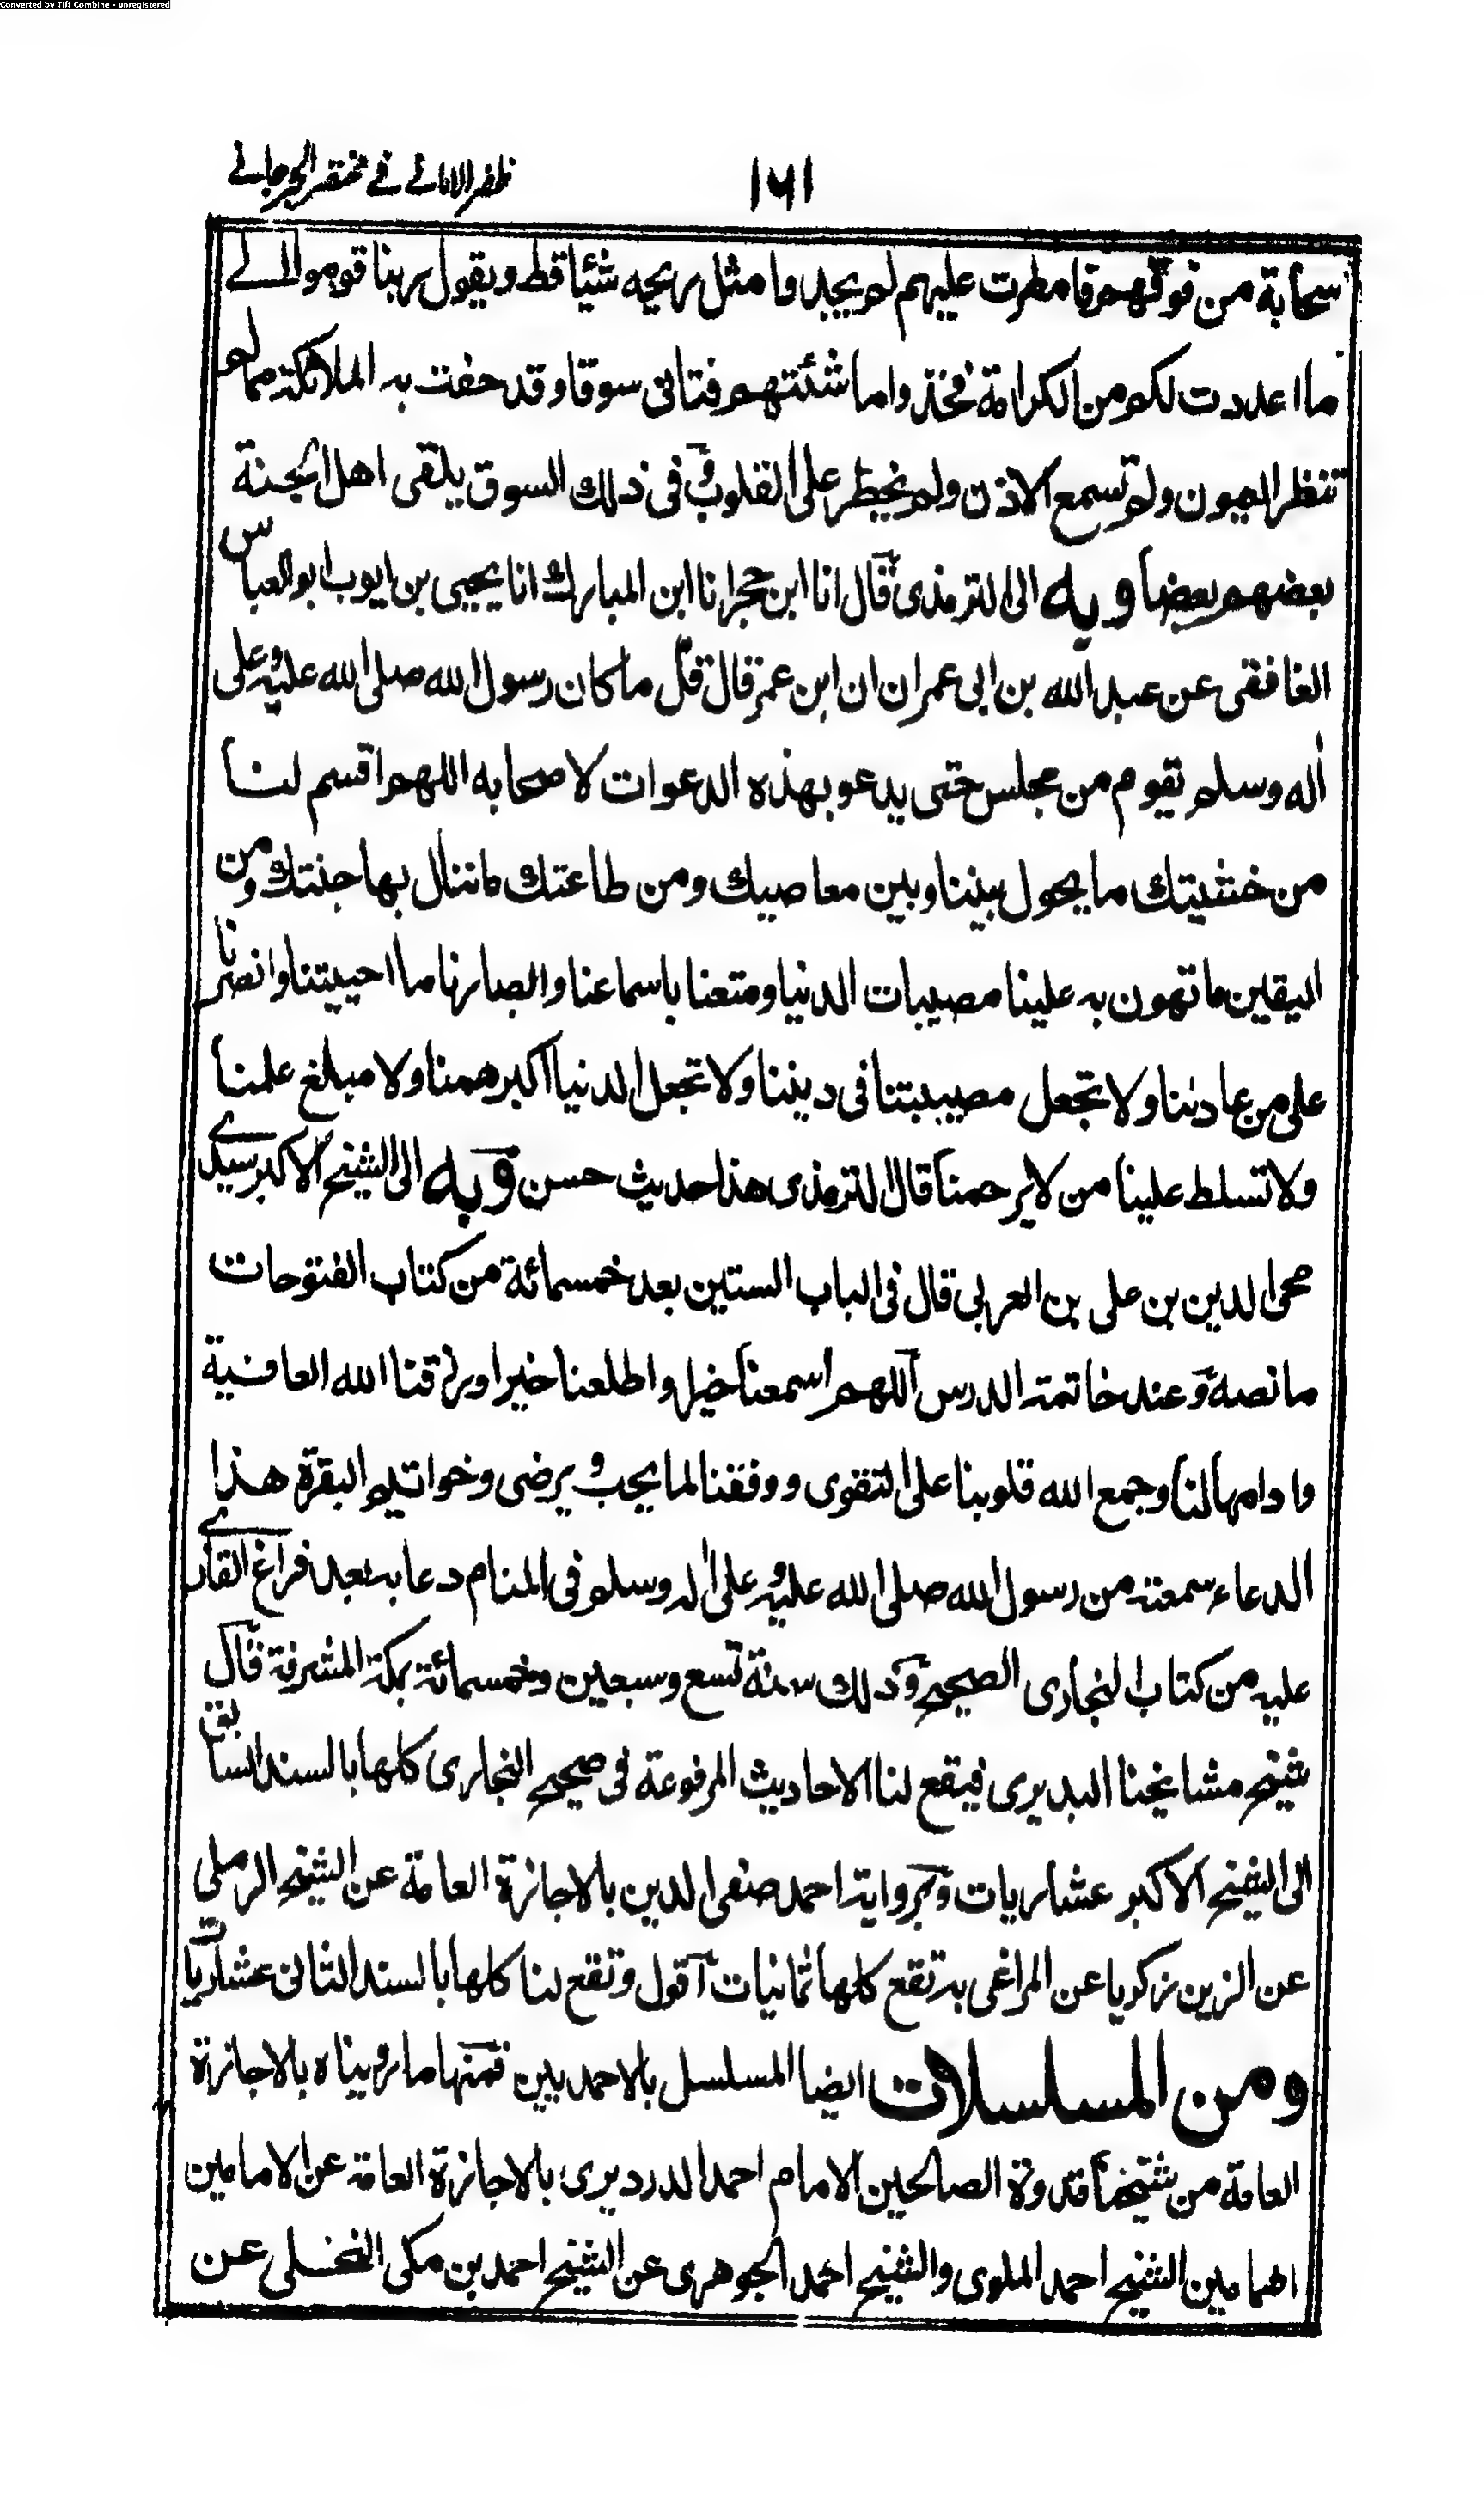 Converted by Tiff Combine - unregistered
١٦١ ظفر الامانے فے مختصر الجرجانے
سحابة من فوقهم فامطرت عليهم لم يجدوا مثل ريحه شيئا قط ويقول ربنا قوموا الے
ما اعددت لكم من الكرامة فخذوا ما شئتهم فتاتى سوقا وقد حفت به الملائكة مما لم
تنظر العيون ولم تسمع الاذن ولم يخطر على القلوب وفى ذلك السوق يلقى اهل الجنة
بعضهم بعضا وبه الى الترمذى قال انا ابن حجر انا ابن المبارك انا يحيى بن ايوب ابو العباس
الغافقى عن عبد الله بن ابى عمران ان ابن عمر قال قل ما كان رسول الله صلى الله عليه وعلى
اله وسلم يقوم من مجلس حتى يدعو بهذه الدعوات لاصحابه اللهم اقسم لنا
من خشيتك ما يحول بيننا وبين معاصيك ومن طاعتك ما ننال بها جنتك ومن
اليقين ما تهون به علينا مصيبات الدنيا ومتعنا باسماعنا وابصارنا ما احييتنا وانصرنا
على من عادانا ولا تجعل مصيبتنا فى ديننا ولا تجعل الدنيا اكبر همنا ولا مبلغ علمنا
ولا تسلط علينا من لا يرحمنا قال الترمذى هذا حديث حسن وبه الى الشيخ الاكبر سيدے
محى الدين بن على بن العربى قال فى الباب الستين بعد خمسمائة من كتاب الفتوحات
ما نصه وعند خاتمة الدرس اللهم اسمعنا خيرا واطلعنا خيرا ورزقنا الله العافية
وادامها لنا وجمع الله قلوبنا على التقوى ووفقنا لما يحب ويرضى وخواتيم البقرة هذا
الدعاء سمعته من رسول الله صلى الله عليه وعلى اله وسلم فى المنام دعا به بعد فراغ القارے
عليه من كتاب البخارى الصحيح وذلك سنة تسع وسبعين وخمسمائة بمكة المشرفة قال
شيخ مشايخنا البديرى فيقع لنا الاحاديث المرفوعة فى صحيح البخارى كلها بالسند السابق
الى الشيخ الاكبر عشاريات وبرواية احمد صفى الدين بالاجازة العامة عن الشيخ الرملى
عن الزين زكريا عن المراغى به تقع كلها ثمانيات اقول وتقع لنا كلها بالسند الثانى عشاريات
ومن المسلسلات ايضا المسلسل بالاحمديين فمنها ما رويناه بالاجازة
العامة من شيخنا قدوة الصالحين الامام احمد الدرديرى بالاجازة العامة عن الامامين
الهمامين الشيخ احمد الملوى والشيخ احمد الجوهرى عن الشيخ احمد بن مكى النخلى عن